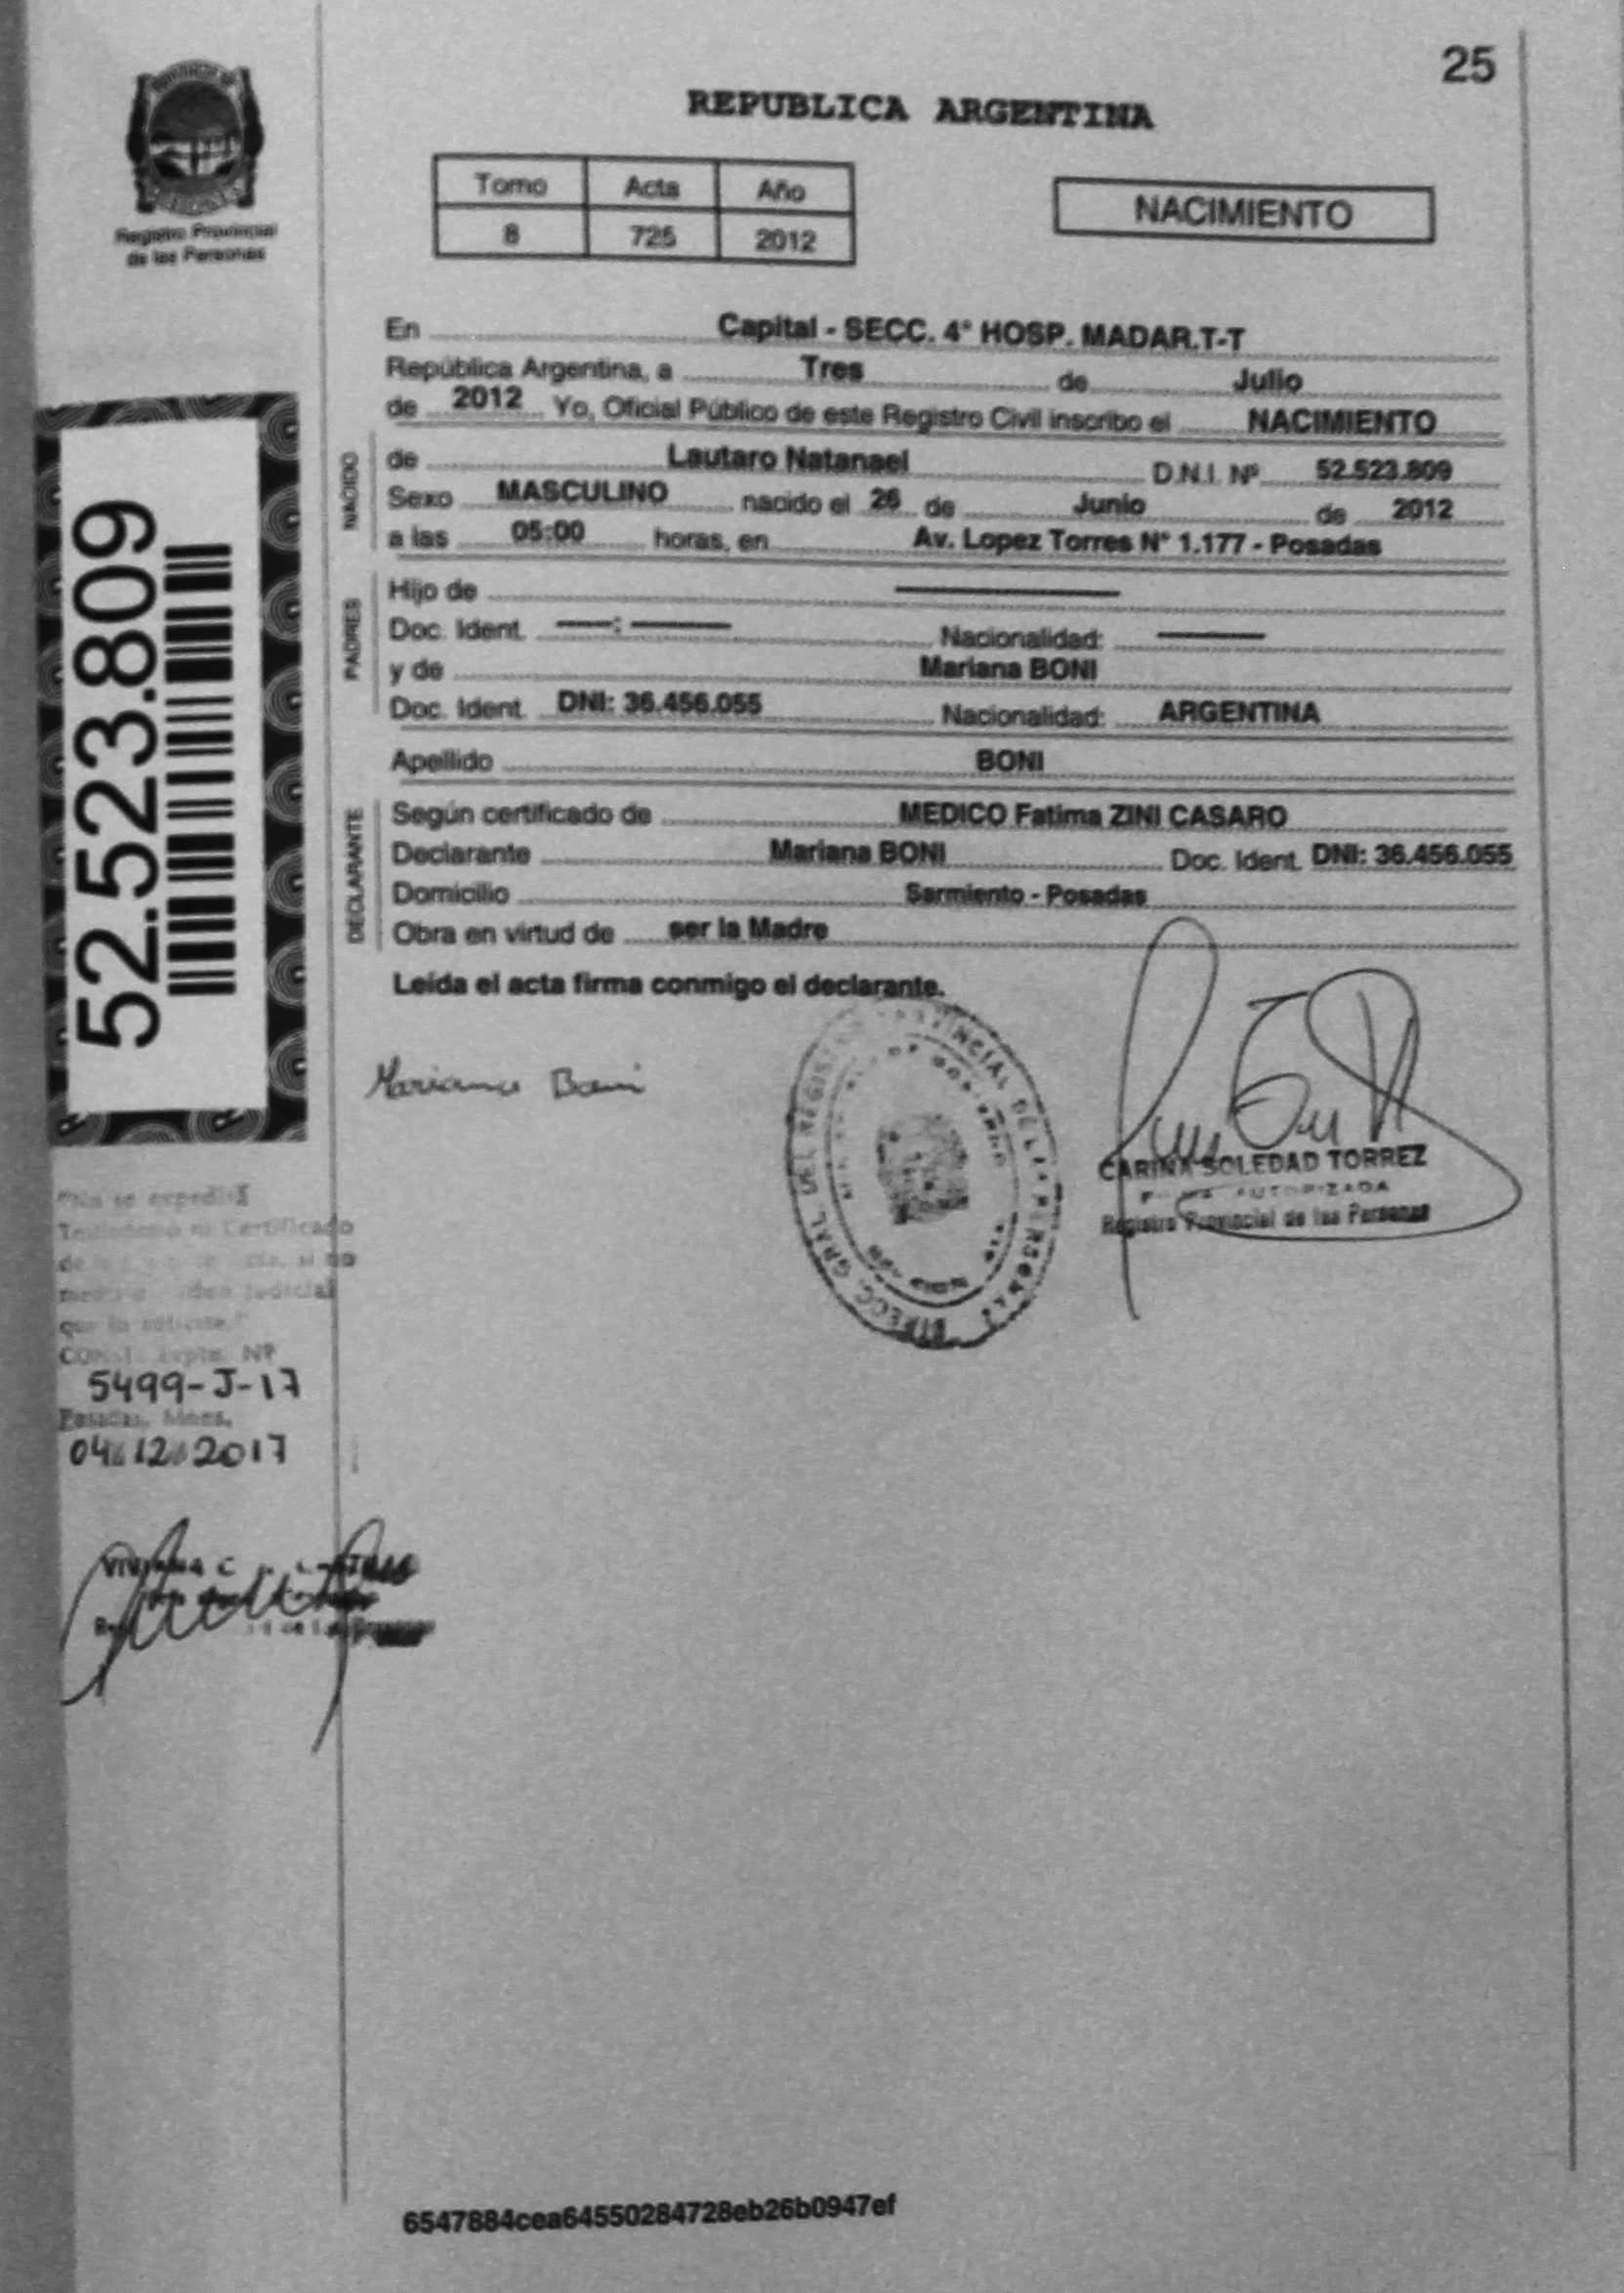 25
REPUBLICA ARGENTINA
Tomo Acta Año
8 725 2012
NACIMIENTO
Registro Provincial
de las Personas
En Capital - SECC. 4° HOSP. MADAR.T-T
República Argentina, a Tres de Julio
de 2012 Yo, Oficial Público de este Registro Civil inscribo el NACIMIENTO
NACIDO
de Lautaro Natanael D.N.I. Nº 52.523.809
Sexo MASCULINO nacido el 26 de Junio de 2012
a las 05:00 horas, en Av. Lopez Torres N° 1.177 - Posadas
PADRES
Hijo de
Doc. Ident. : Nacionalidad:
y de Mariana BONI
Doc. Ident. DNI: 36.456.055 Nacionalidad: ARGENTINA
Apellido BONI
DECLARANTE
Según certificado de MEDICO Fatima ZINI CASARO
Declarante Mariana BONI Doc. Ident. DNI: 36.456.055
Domicilio Sarmiento - Posadas
Obra en virtud de ser la Madre
Leída el acta firma conmigo el declarante.
52.523.809
Mariana Boni
DIRECC. GRAL DEL REGISTRO PROVINCIAL DE LAS PERSONAS
CARINA SOLEDAD TORREZ
FIRMA AUTORIZADA
Registro Provincial de las Personas
"No se expedirá
Testimonio ni Certificado
de
judicial
que lo solicite."
Expte. Nº
5499-J-17
Posadas, Mnes,
04 12 2017
6547884cea64550284728eb26b0947ef